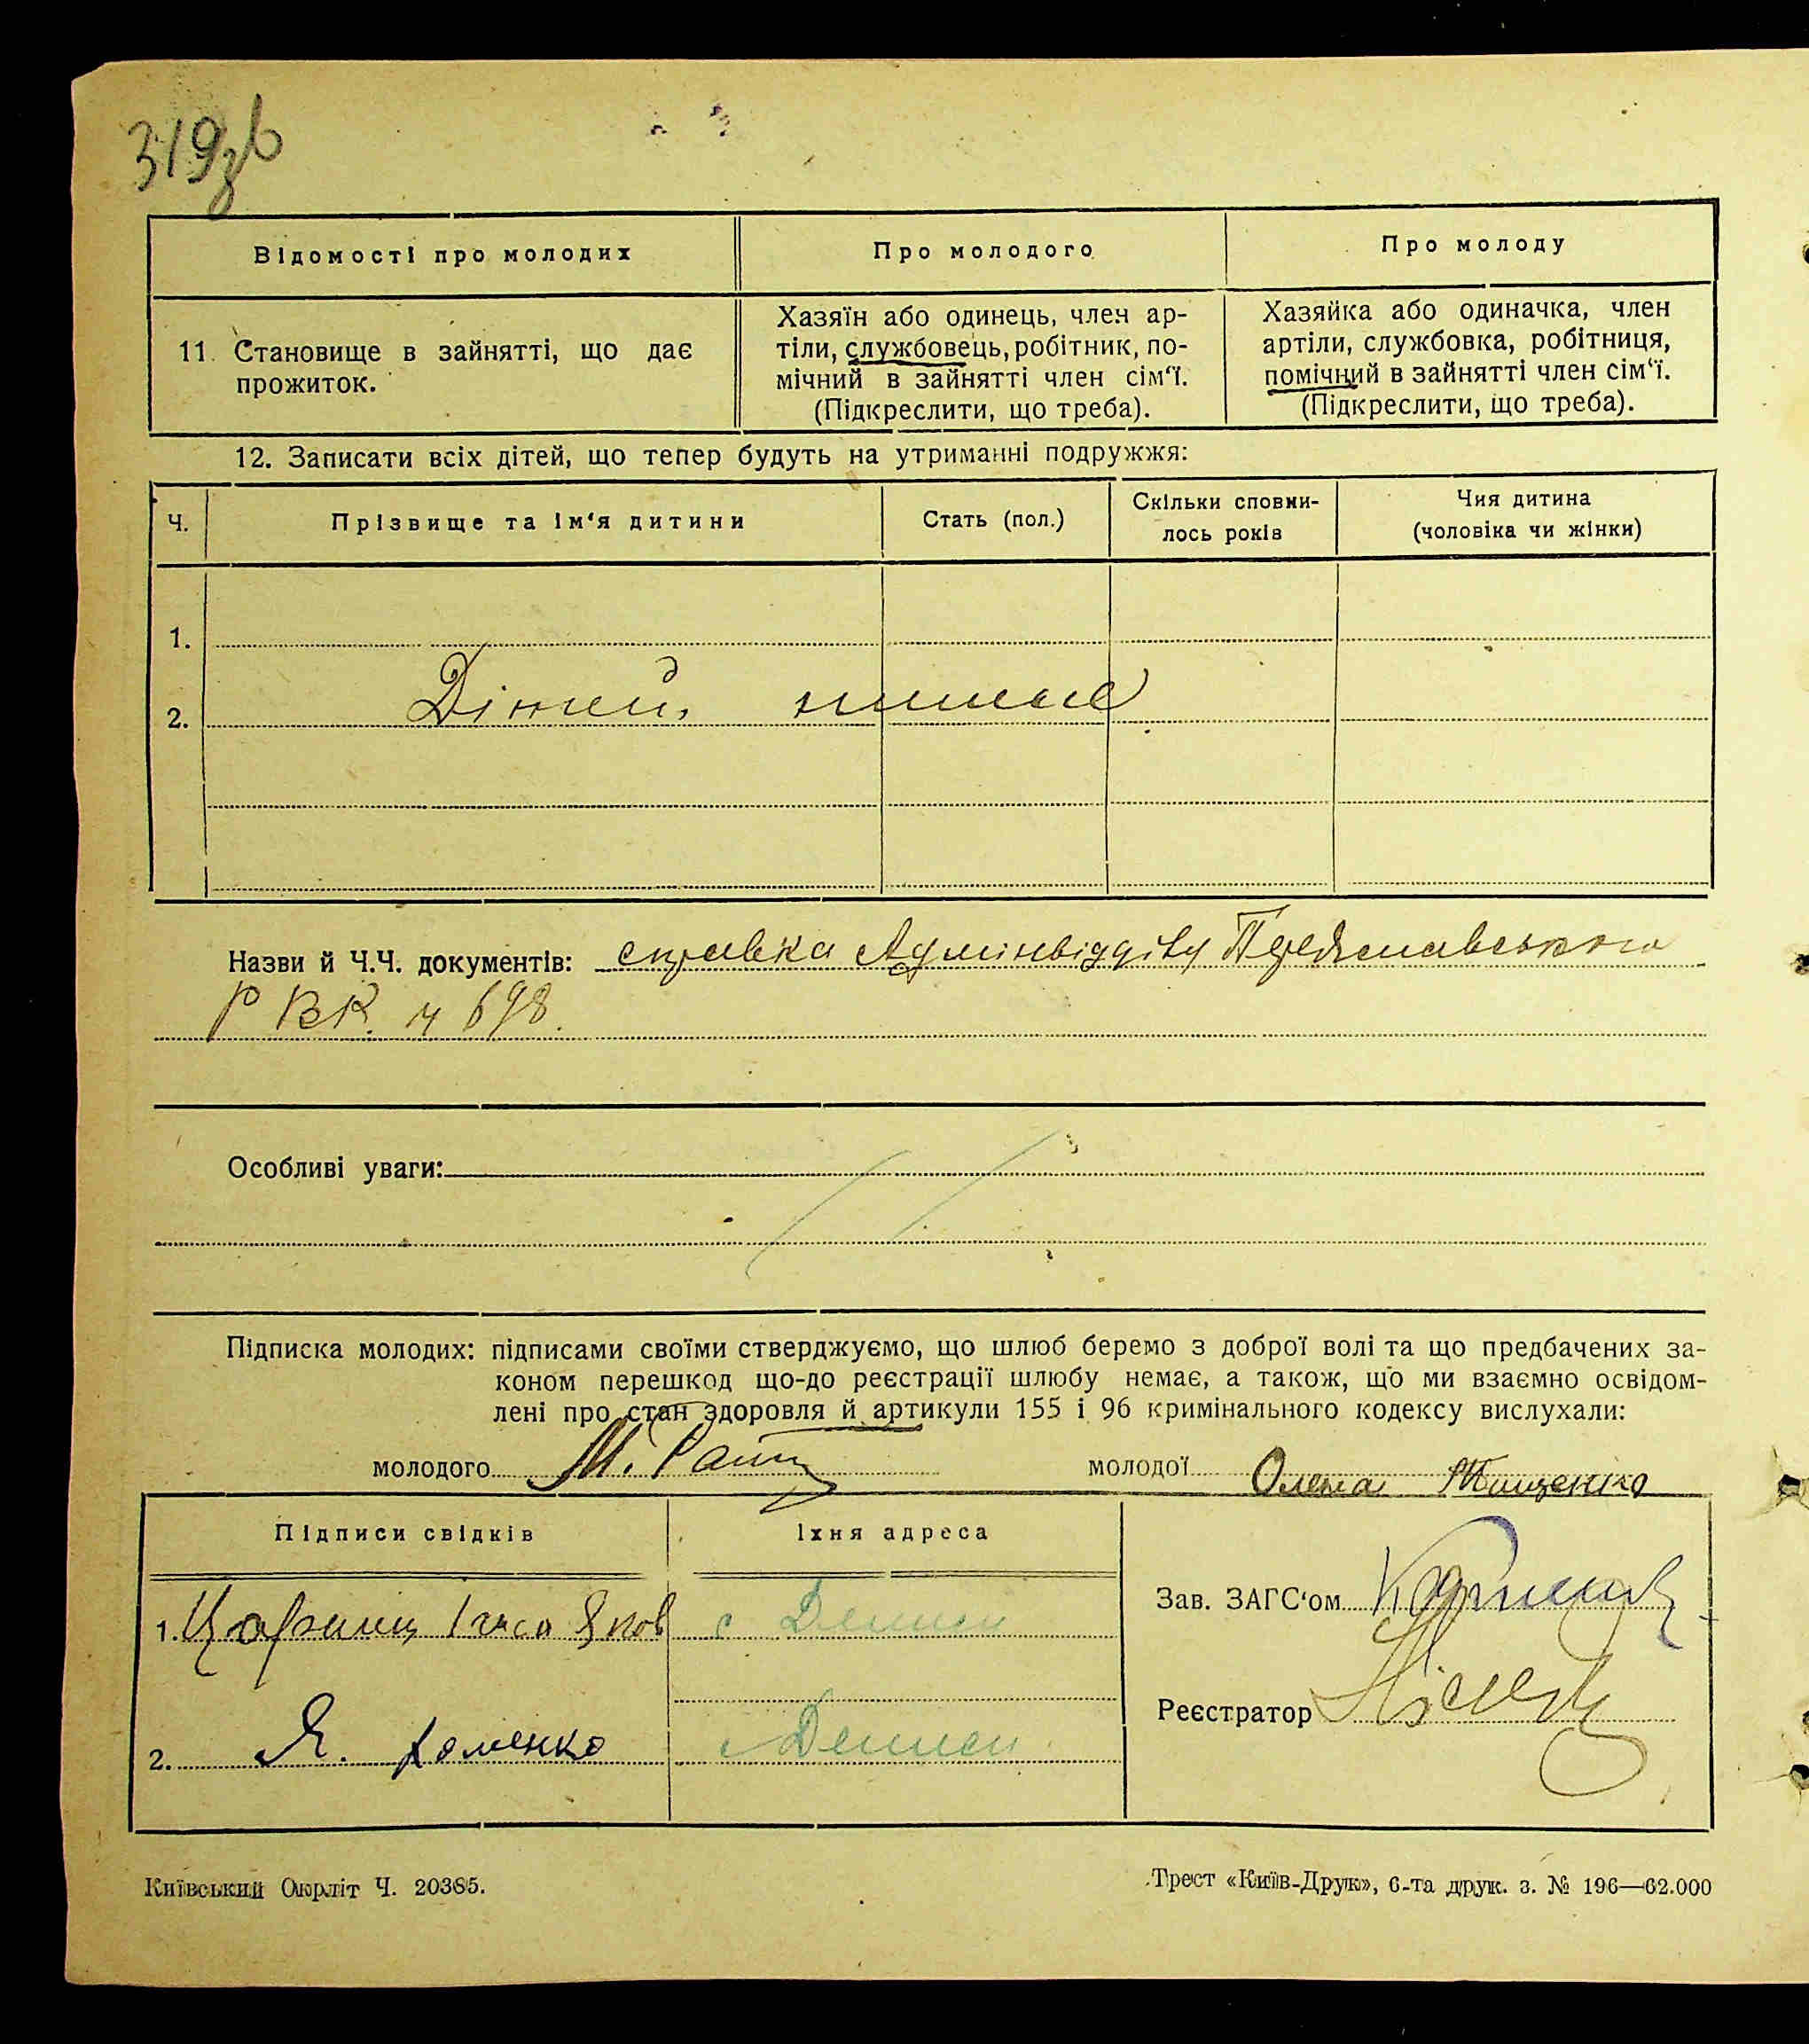 319зв
Відомості про молодих
Про молодого
Про молоду
11. Становище в зайнятті, що дає
прожиток.
Хазяїн або одинець, член ар-
тіли, службовець, робітник, по-
мічний в зайнятті член сім‘ї.
(Підкреслити, що треба).
Хазяйка або одиначка, член
артіли, службовка, робітниця,
помічний в зайнятті член сім‘ї.
(Підкреслити, що треба).
12. Записати всіх дітей, що тепер будуть на утриманні подружжя:
Ч.
Прізвище та ім‘я дитини
Стать (пол.)
Скільки сповни-
лось років
Чия дитина
(чоловіка чи жінки)
1.
2. Дітей немає
Назви й Ч.Ч. документів: справка Адмінвідділу Переяславського
РВК. ч 698.
Особливі уваги:
Підписка молодих: підписами своїми стверджуємо, що шлюб беремо з доброї волі та що предбачених за-
коном перешкод що-до реєстрації шлюбу немає, а також, що ми взаємно освідом-
лені про стан здоровля й артикули 155 і 96 кримінального кодексу вислухали:
молодого М. молодої Олена Тищенко
Підписи свідків
Їхня адреса
1.
с Дениси
2. Я. Хоменко
с Дениси
Зав. ЗАГС‘ом
Реєстратор
Київський Окрліт Ч. 20385.
Трест «Київ-Друк», 6-та друк. з. № 196—62.000